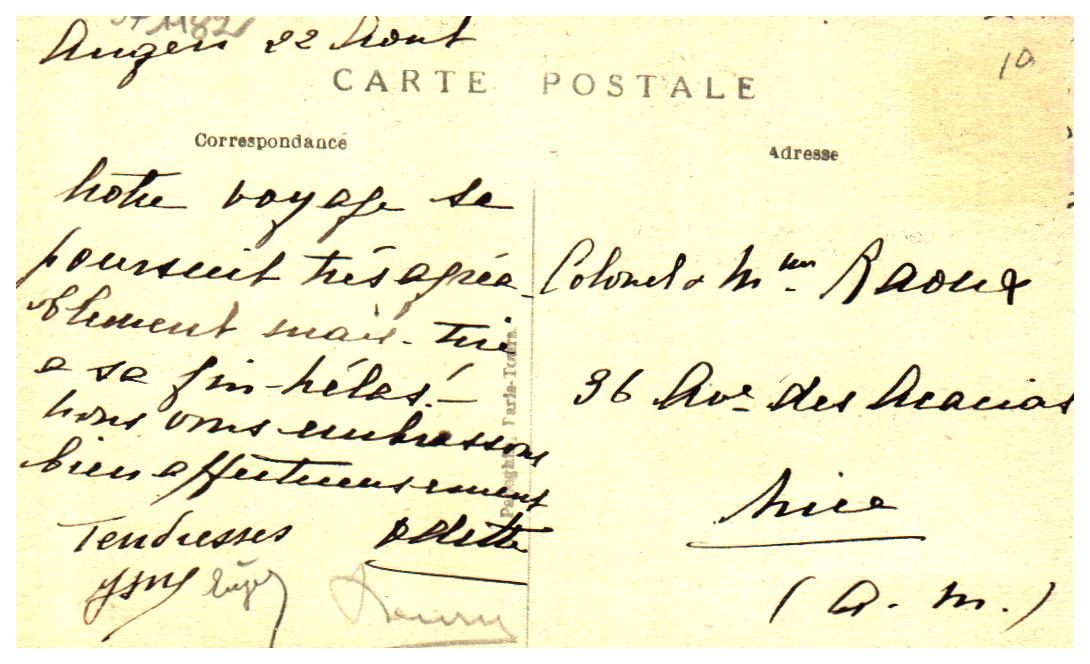 Angers 22 Aout
10
CARTE POSTALE
Correspondance
Adresse
Notre voyage se
poursuit très agréa-
blement mais tire
a sa fin - hélas! -
Nous vous embrassons
bien affectueusement
Tendresses Odette
Henry
Colonel & Mme Raoux
36 Ave des Acacias
Nice
(A. M.)
Paris-Tours.